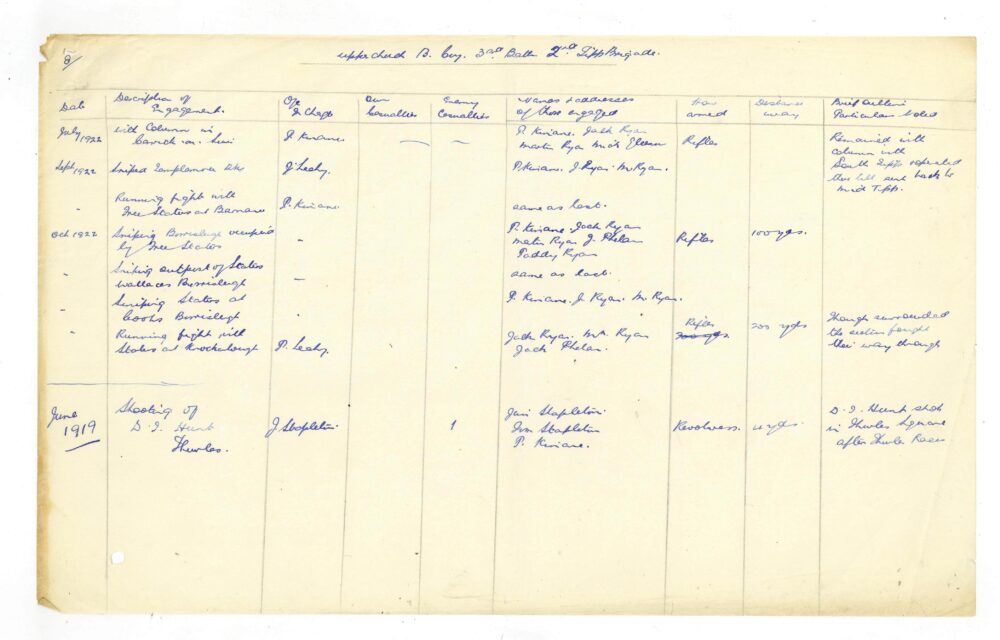 8/
Upperchurch B. Coy. 3rd Batt 2nd Tipp Brigade.
Date
Description of Engagement.
O/c in Charge
Our Casualties
Enemy Casualties
Names & addresses of those engaged
How armed
Distance away
Brief outline Particulars noted
July 1922
with Column in
Carrick-on-Suir
P. Kinane
—
—
P. Kinane. Jack Ryan
Martin Ryan Mick Gleeson
Rifles
Remained with
column until
South Tipp
then till sent back to
Mid Tipp.
Sept 1922
Sniped Templemore
J Leahy.
P. Kinane. J. Ryan. M. Ryan.
"
Running fight with
Free Staters at Barnane
P. Kinane
same as last.
Oct 1922
Sniping Borrisleigh occupied
by Free Staters
"
P. Kinane. Jack Ryan
Martin Ryan J. Phelan
Paddy Ryan
Rifles
100 yds.
"
Sniping outpost of Staters
Wallaces Borrisleigh
"
same as last.
"
Sniping Staters at
Borrisleigh
"
P. Kinane. J. Ryan. M. Ryan.
"
Running fight with
Staters at Knockalough
P. Leahy.
Jack Ryan. Mt. Ryan
Jack Phelan.
Rifles
200 yds
200 yds
Though surrounded
the section fought
their way through
June
1919
Shooting of
D. I. Hunt
Thurles.
J Stapleton.
1
Jim Stapleton.
Stapleton
P. Kinane.
Revolvers.
yds.
D. I. Hunt shot
in Thurles Square
after Thurles Races